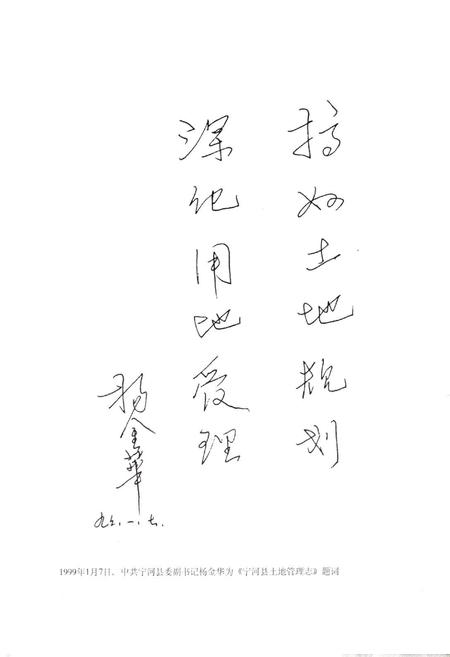 搞好土地规划
深化用地管理
杨金華
九九.一.七.
1999年1月7日，中共宁河县委副书记杨金华为《宁河县土地管理志》题词